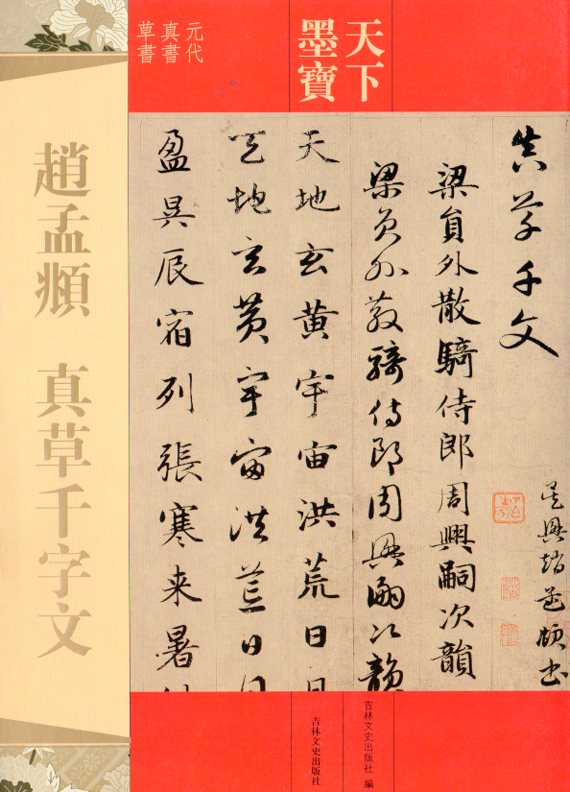 天下
墨寶
元代
真書
草書
真草千文
吳興趙孟頫書
梁員外散騎侍郎周興嗣次韻
梁員外散騎侍郎周興嗣次韻
天地玄黃宇宙洪荒日月
天地玄黃宇宙洪荒日月
盈昃辰宿列張寒来暑
趙孟頫 真草千字文
吉林文史出版社 編
吉林文史出版社